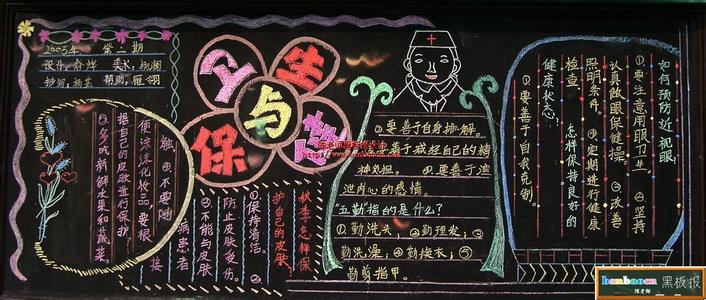 2005年 第二期
卫生
与
保健
如何预防近视眼:
①要注意用眼卫生 ②坚持
认真做眼保健操 ③改善
照明条件。④定期进行健康
检查。怎样保持良好的
健康状态:
①要善于自我克制。
②要善于自身排解。
③要善于减轻自己的精
神负担。④要善于渲
泄内心的感情。
"五勤"指的是什么?
①勤洗头;②勤理发;③
勤洗澡;④勤换衣;⑤
勤剪指甲。
秋季怎样保
护自己的皮肤?
①保持清洁。②
防止皮肤受伤。
③不能与皮肤
病患者
接
触。④不要随
便涂浅化妆品,要根
据自己的皮肤进行保护
⑤多吃新鲜水果和蔬菜
黑板报